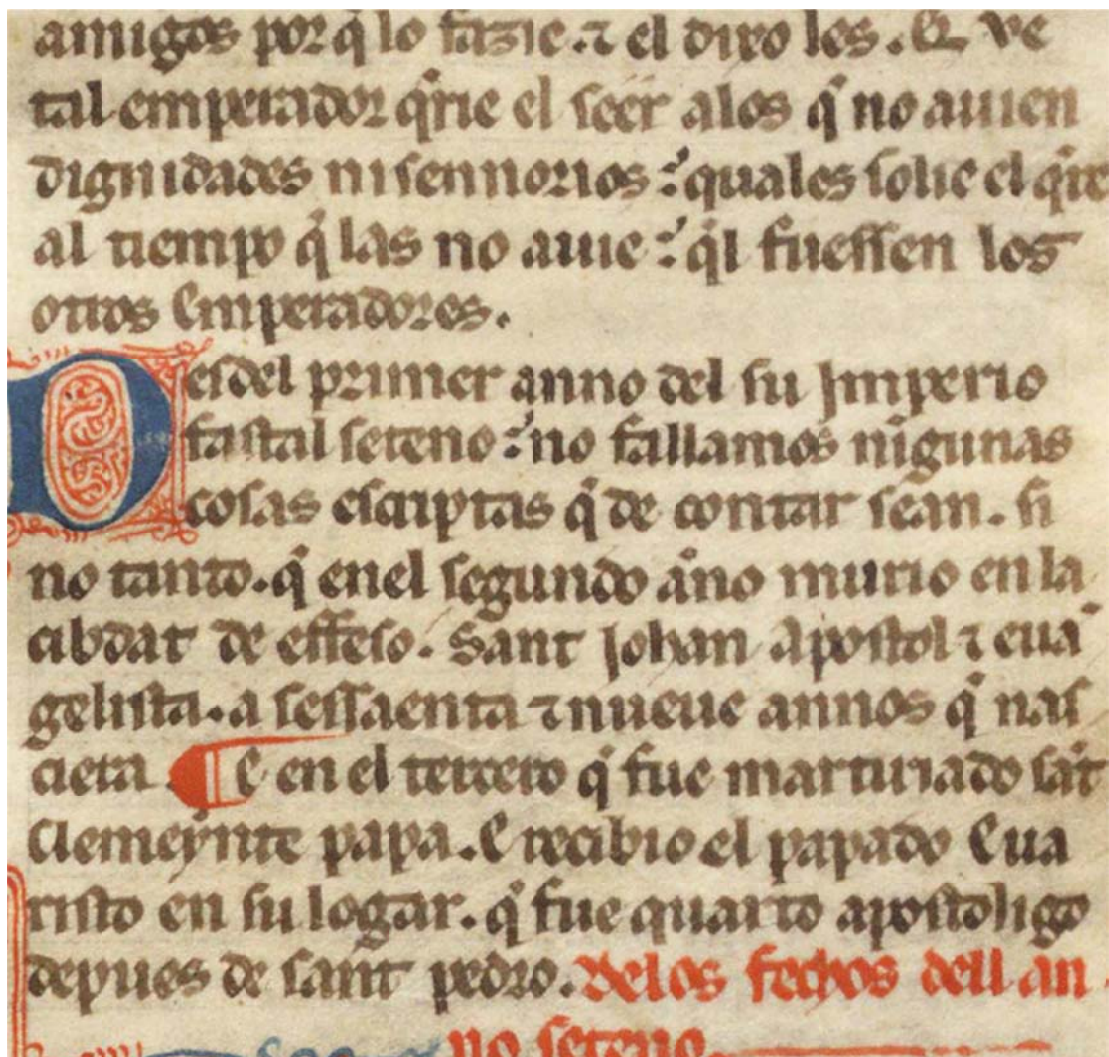 amigos por q̃ lo fazie. ⁊ el dixo les. Q ve
tal emperador q̃rie el seer alos q̃ no auien
dignidades ni sennorios: quales solie el q̃rer
al tiempo q̃ las no auie: q̃l fuessen los
otros Emperadores.
Desdel primer anno del su Imperio
fastal seteno: no fallamos nĩgunas
cosas escriptas q̃ de contar sean. si
no tanto. q̃ enel segundo ãno murio en la
cibdat de effeso. Sant Johan Apostol ⁊ euã
gelista. a sessaenta ⁊ nueue annos q̃ nas
ciera. E en el tercero q̃ fue marturiado sãt
Clemeynte papa. E recibio el papado Eua
risto en su logar. q̃ fue quarto apostoligo
depues de sant pedro. Delos fechos dell an
no seteno.